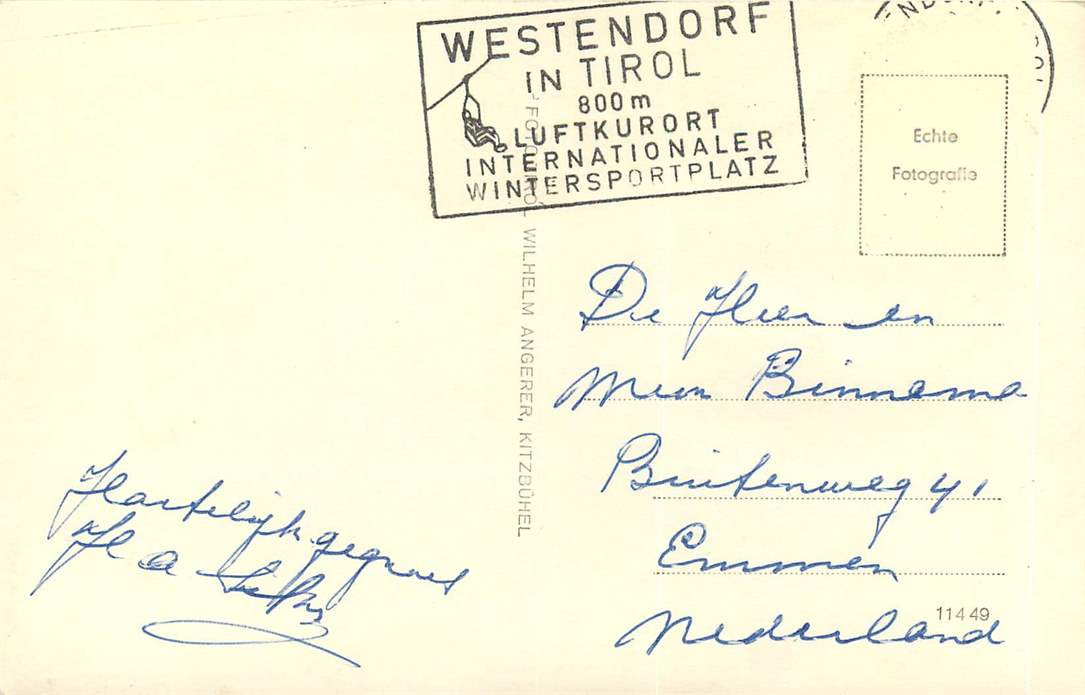 WESTENDORF
IN TIROL
800 m
LUFTKURORT
INTERNATIONALER
WINTERSPORTPLATZ
Echte
Fotografie
WILHELM ANGERER, KITZBÜHEL
De Heer en
Mevr Binnema
Buitenweg 41
Emmen
Nederland
11449
Hartelijk gegroet